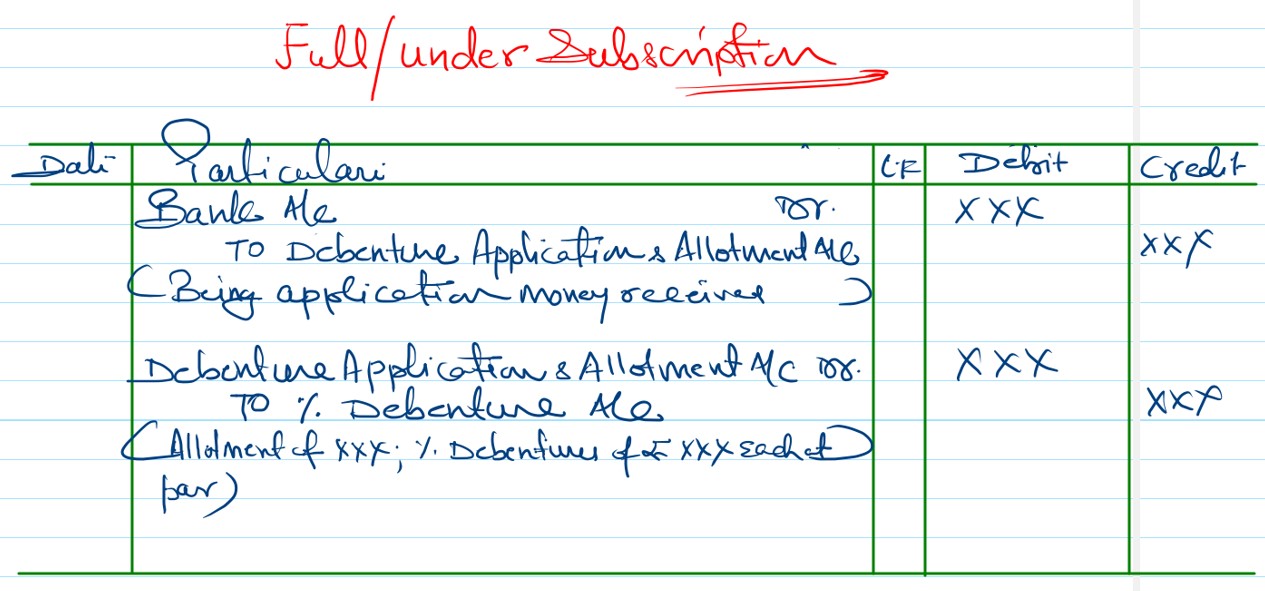 Full/under Subscription
Date Particulars L.F Debit Credit
Bank A/c Dr. XXX
To Debenture Application & Allotment A/c XXX
(Being application money received)
Debenture Application & Allotment A/C Dr. XXX
To % Debenture A/c XXX
(Allotment of XXX; % Debentures of ₹ XXX each at)
par)